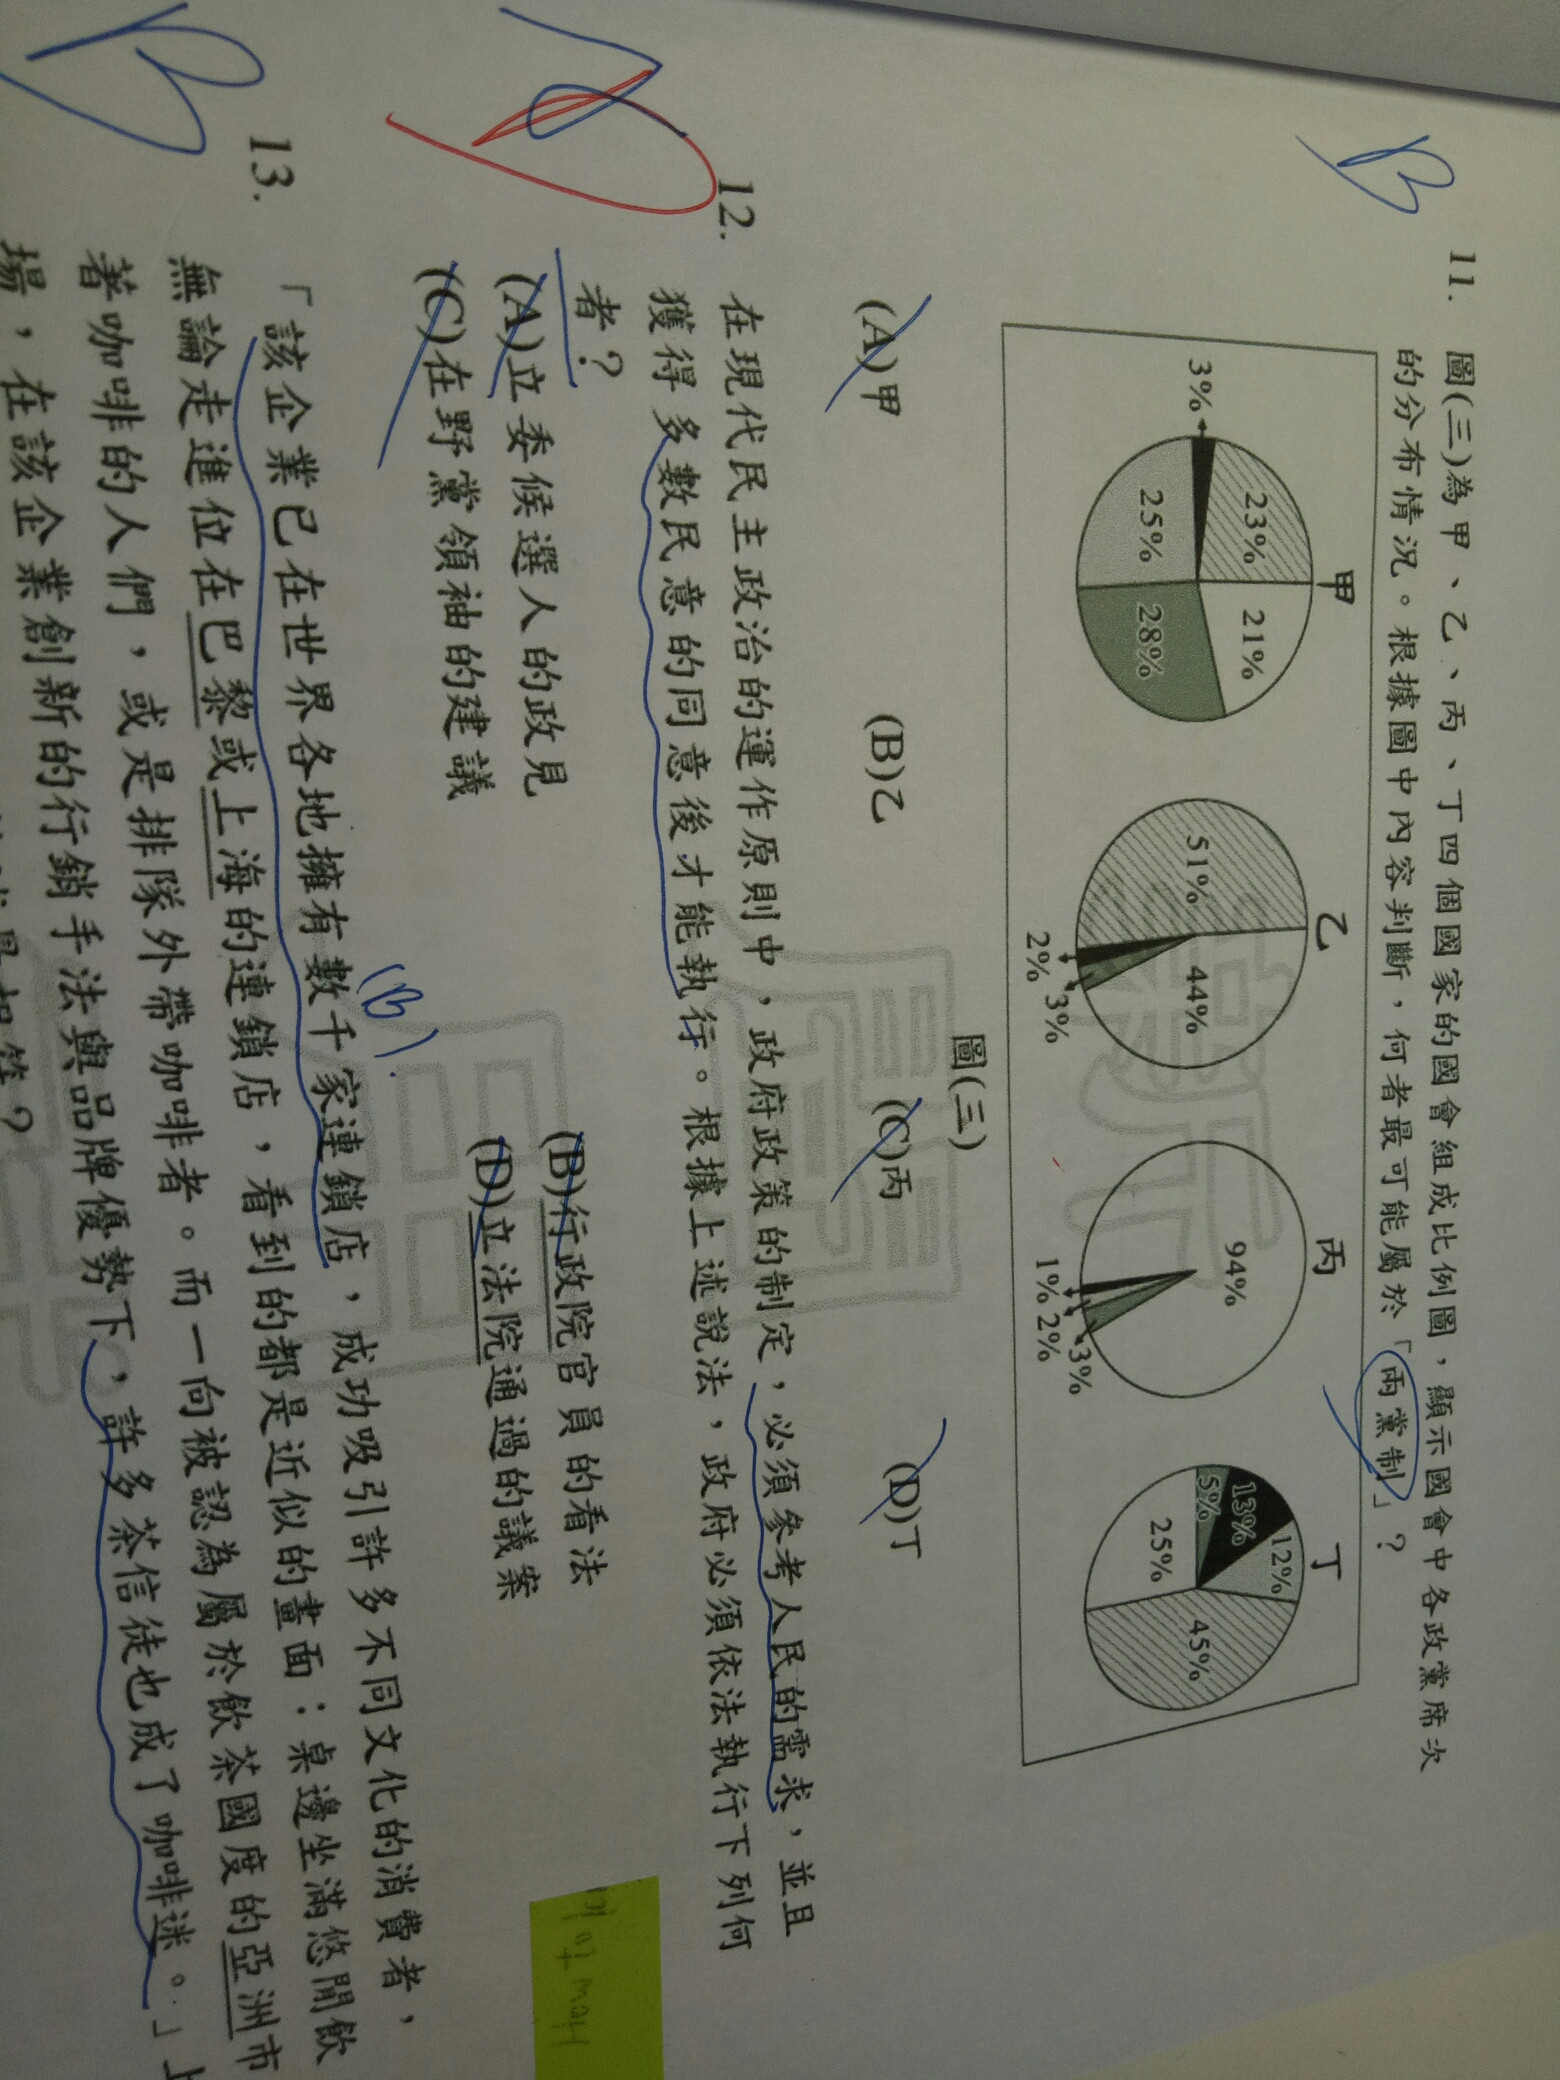 B
11. 圖(三)為甲、乙、丙、丁四個國家的國會組成比例圖，顯示國會中各政黨席次
的分布情況。根據圖中內容判斷，何者最可能屬於「兩黨制」？
甲 乙 丙 丁
23% 21% 3% 25% 28%
51% 44% 2% 3%
94% 1% 2% 3%
12% 13% 5% 25% 45%
圖(三)
(A)甲 (B)乙 (C)丙 (D)丁
12. 在現代民主政治的運作原則中，政府政策的制定，必須參考人民的需求，並且
獲得多數民意的同意後才能執行。根據上述說法，政府必須依法執行下列何
者？
(A)立委候選人的政見 (B)行政院官員的看法
(C)在野黨領袖的建議 (D)立法院通過的議案
(B)
B
13. 「該企業已在世界各地擁有數千家連鎖店，成功吸引許多不同文化的消費者，
無論走進位在巴黎或上海的連鎖店，看到的都是近似的畫面：桌邊坐滿悠閒飲
著咖啡的人們，或是排隊外帶咖啡者。而一向被認為屬於飲茶國度的亞洲市
場，在該企業創新的行銷手法與品牌優勢下，許多茶信徒也成了咖啡迷。」上